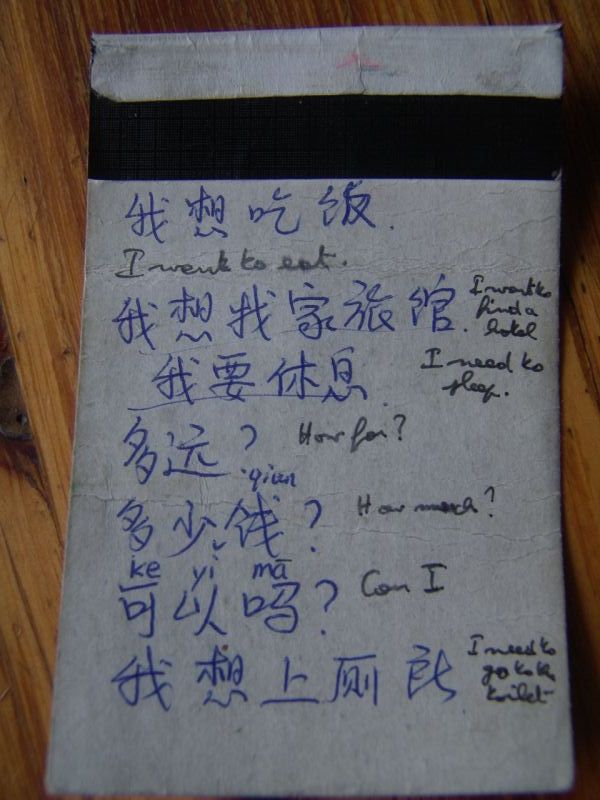 我想吃饭.
I want to eat.
我想找家旅馆. I want to find a hotel
我要休息. I need to sleep.
多远? How far?
qian
多少钱? How much?
ke yi mā
可以吗? Can I
我想上厕所 I need to go to the toilet